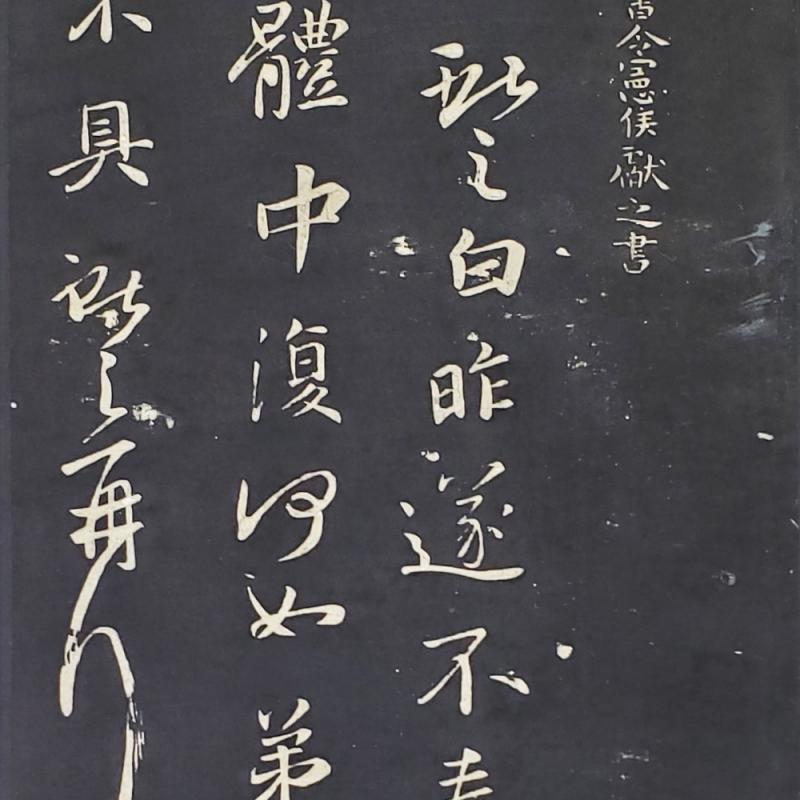 令憲侯獻之書
獻之白昨遂不奉
體中復何如弟
不具獻之再拜